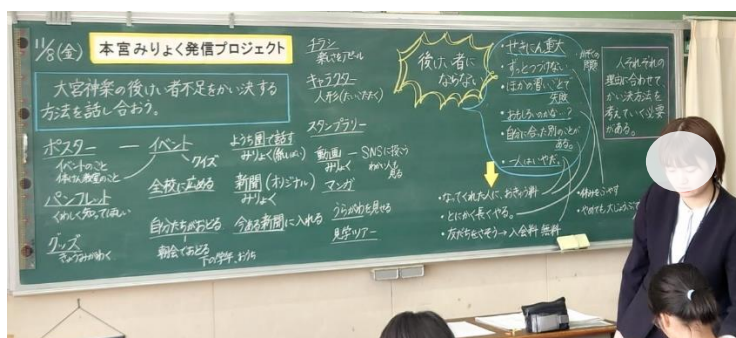 11/8(金)
本宮みりょく発信プロジェクト
大宮神楽の後けい者不足をかい決する
方法を話し合おう。
ポスター
イベントのこと
体けん教室のこと
パンフレット
くわしく知ってほしい
グッズ
きょうみがわく
イベント
クイズ
全校に広める
自分たちがおどる
朝会でおどる
下の学年、おうち
ようち園で話す
みりょく
新聞(オリジナル)
みりょく
今ある新聞に入れる
チラシ
キャラクター
スタンプラリー
動画
みりょく
SNSに
わかい人
見る
マンガ
うらがわを見せる
見学ツアー
後けい者に
ならない
・せきにん重大
・ずっとつづけない
・ほかの習いごとで
失敗
・おもしろいのかな…?
・自分に合った別のことが
ある。
・一人はいやだ。
・なってくれた人に、おきゅう料
・とにかく長くやる。
・友だちをさそう→入会料無料
・休みをふやす
人それぞれの
理由に合わせて
かい決方法を
考えていく必要
がある。